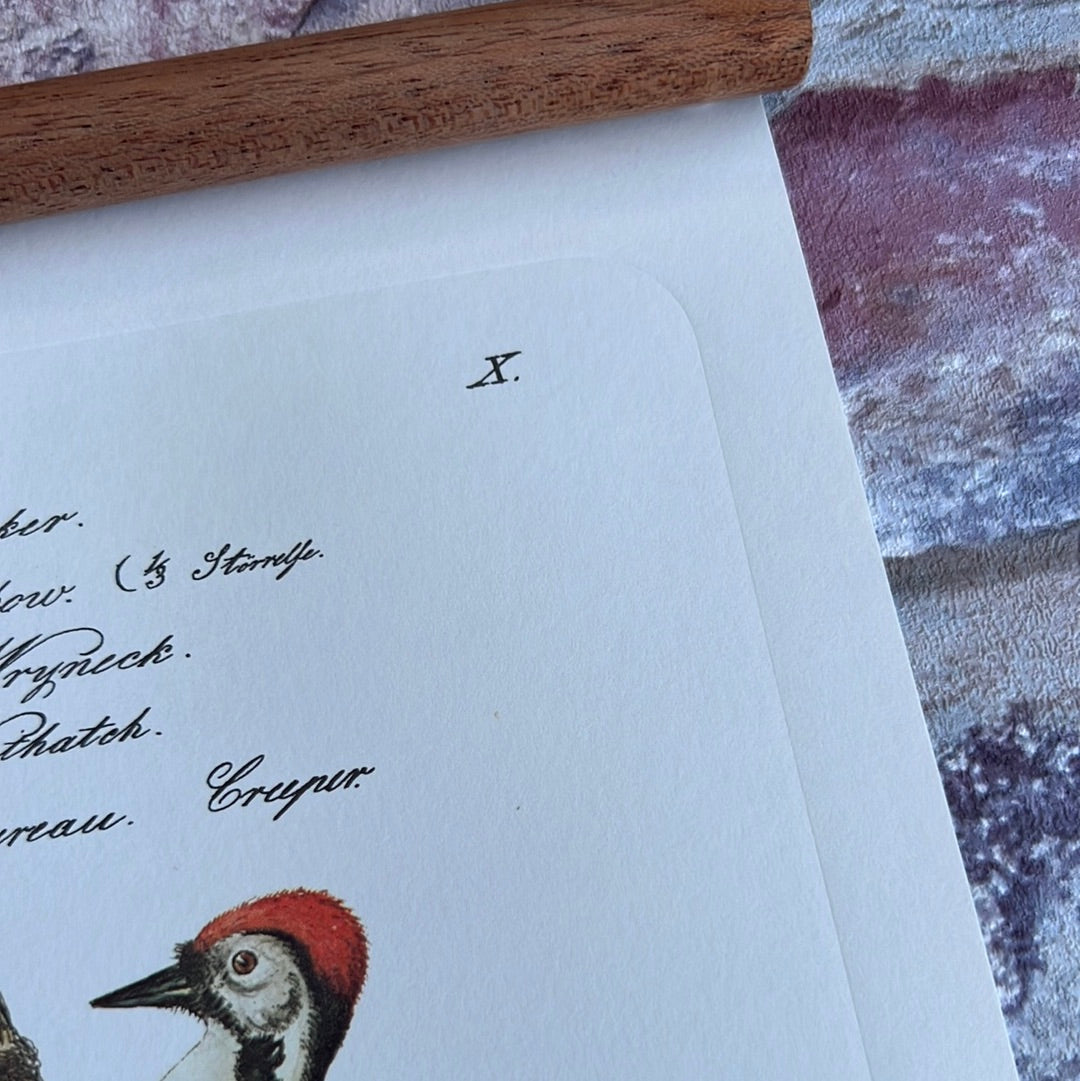 X.
ker.
ow. (⅓ Störrelse.
Wryneck.
thatch.
ureau. Creeper.